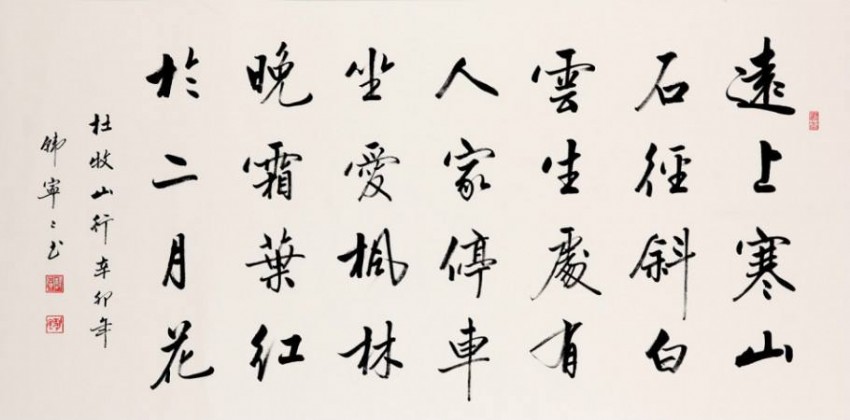 遠上寒山
石徑斜白
雲生處有
人家停車
坐愛楓林
晚霜葉紅
於二月花
杜牧山行辛卯年
寧寧书